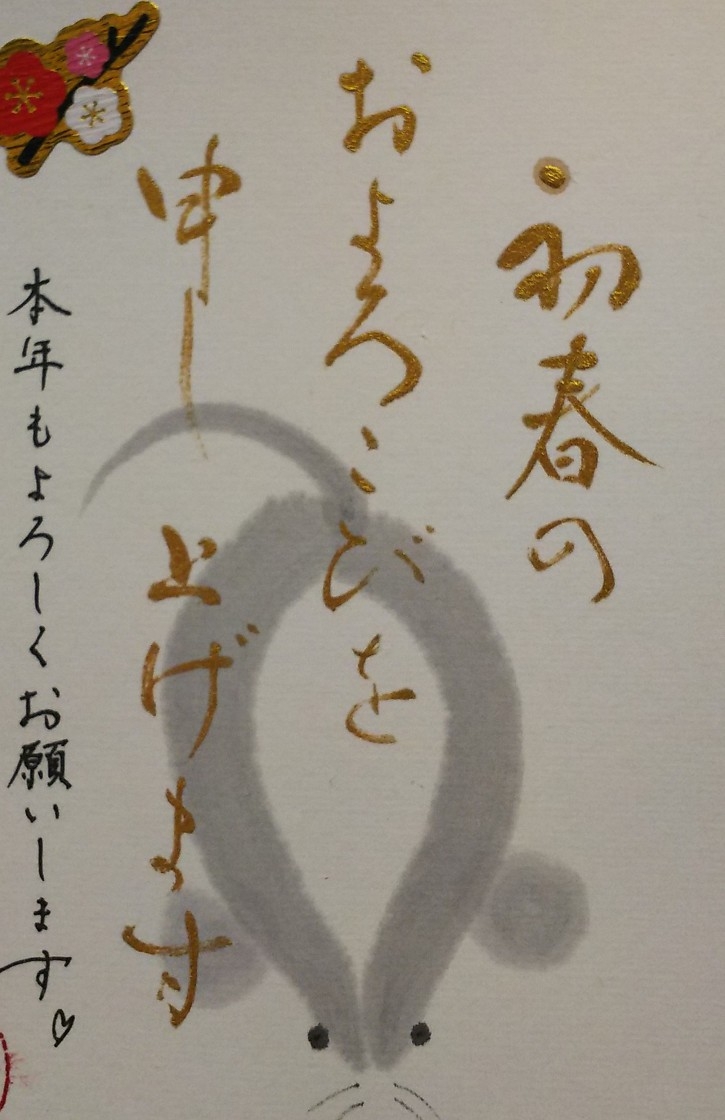 初春の
およろこびを
申し上げます
本年もよろしくお願いします♡